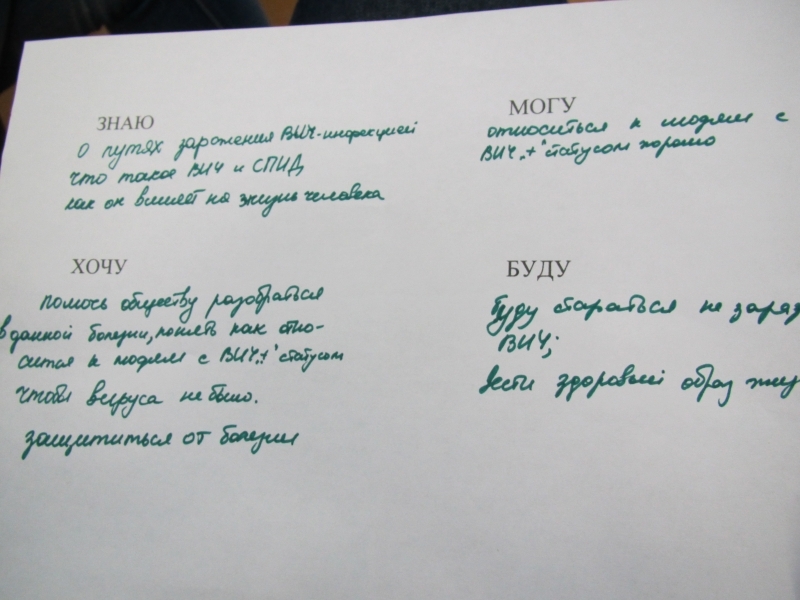 ЗНАЮ
о путях заражения ВИЧ-инфекцией
что такое ВИЧ и СПИД
как он влияет на жизнь человека
МОГУ
относиться к людям с
ВИЧ„+“ статусом хорошо
ХОЧУ
помочь обществу разобраться
в данной болезни, понять как отно-
сится к людям с ВИЧ„+“ статусом
чтобы вируса не было.
защититься от болезни
БУДУ
буду стараться не зараз
ВИЧ;
вести здоровый образ жиз